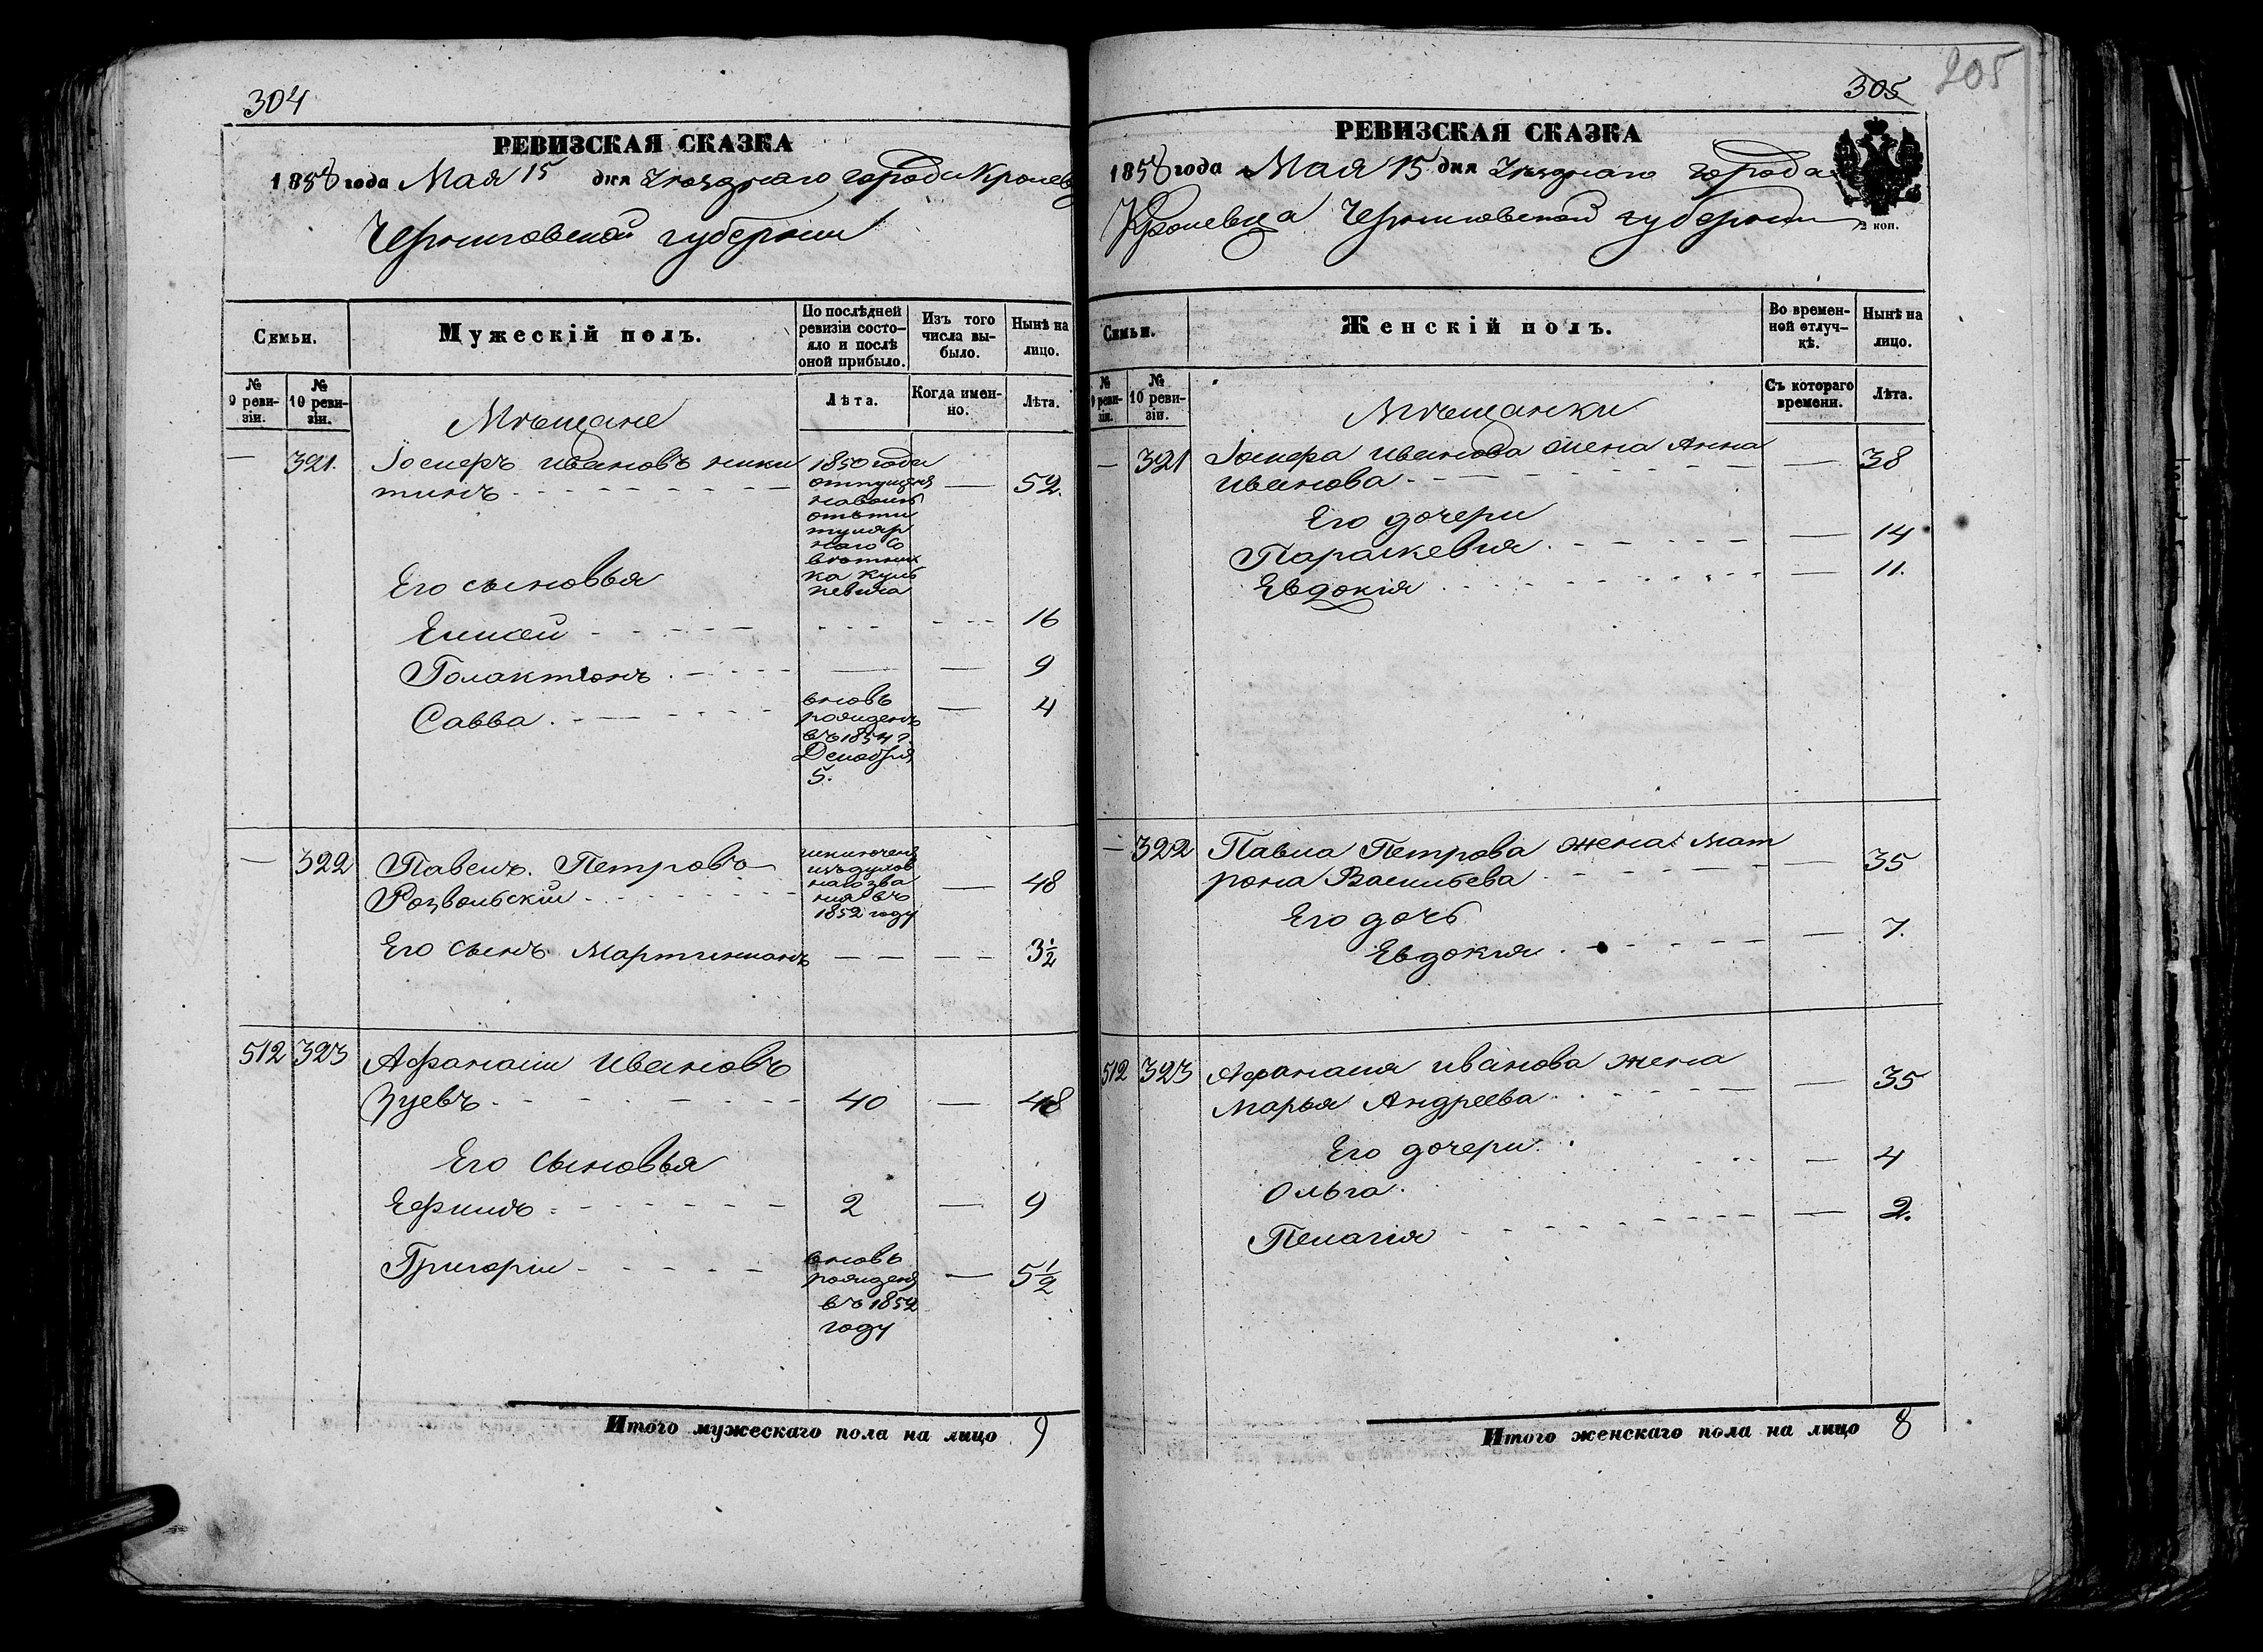 304
РЕВИЗСКАЯ СКАЗКА
1858 года Мая 15 дня Уѣзднаго города Кролев
Черниговской губернии
Семьи.
Мужескій полъ.
По послѣдней ревизіи состо-
яло и послѣ оной прибыло.
Изъ того числа вы-
было.
Нынѣ на лицо.
№ 9 реви-
зіи.
№ 10 реви-
зіи.
Лѣта.
Когда имен-
но.
Лѣта.
Мѣщане
— 321. Иванов ники 1850 года
тинъ — 52.
отпущенъ
на волю
отъ ти
туляр
наго Со
вѣтни
ка
Его сыновья
Елисей 16
Голактіонъ — — 9
Савва — 4
вновь
рожденъ
въ 1854 г.
Декабря
5.
— 322 Павелъ Петровъ
— 48
исключенъ
изъ духов
наго зва
ния въ
1852 году
Его сынъ Мартинианъ — — — — 3½
512 323 Афанасій Ивановъ
Зуевъ 40 — 48
Его сыновья
Ефимъ 2 — 9
Григорій — 5½
вновь
рожденъ
въ 1852
году
Итого мужескаго пола на лицо 9
305
205
РЕВИЗСКАЯ СКАЗКА
1858 года Мая 15 дня Уѣзднаго города
Кролевца Черниговской губернии
2 коп.
Семьи.
Женскій полъ.
Во времен-
ной отлуч-
кѣ.
Нынѣ на лицо.
№ 9 реви-
зіи.
№ 10 реви-
зіи.
Съ котораго времени.
Лѣта.
Мѣщанки
— 321 Иванова жена Анна
Иванова — 38
Его дочери
Параскевия — 14
Евдокія — 11.
— 322 Павла Петрова жена Мат
рона Васильева — 35
Его дочь
Евдокия — 7.
512 323 Афанасия Иванова жена
Марья Андреева — 35
Его дочери
Ольга — 4
Пелагія — 2.
Итого женскаго пола на лицо 8